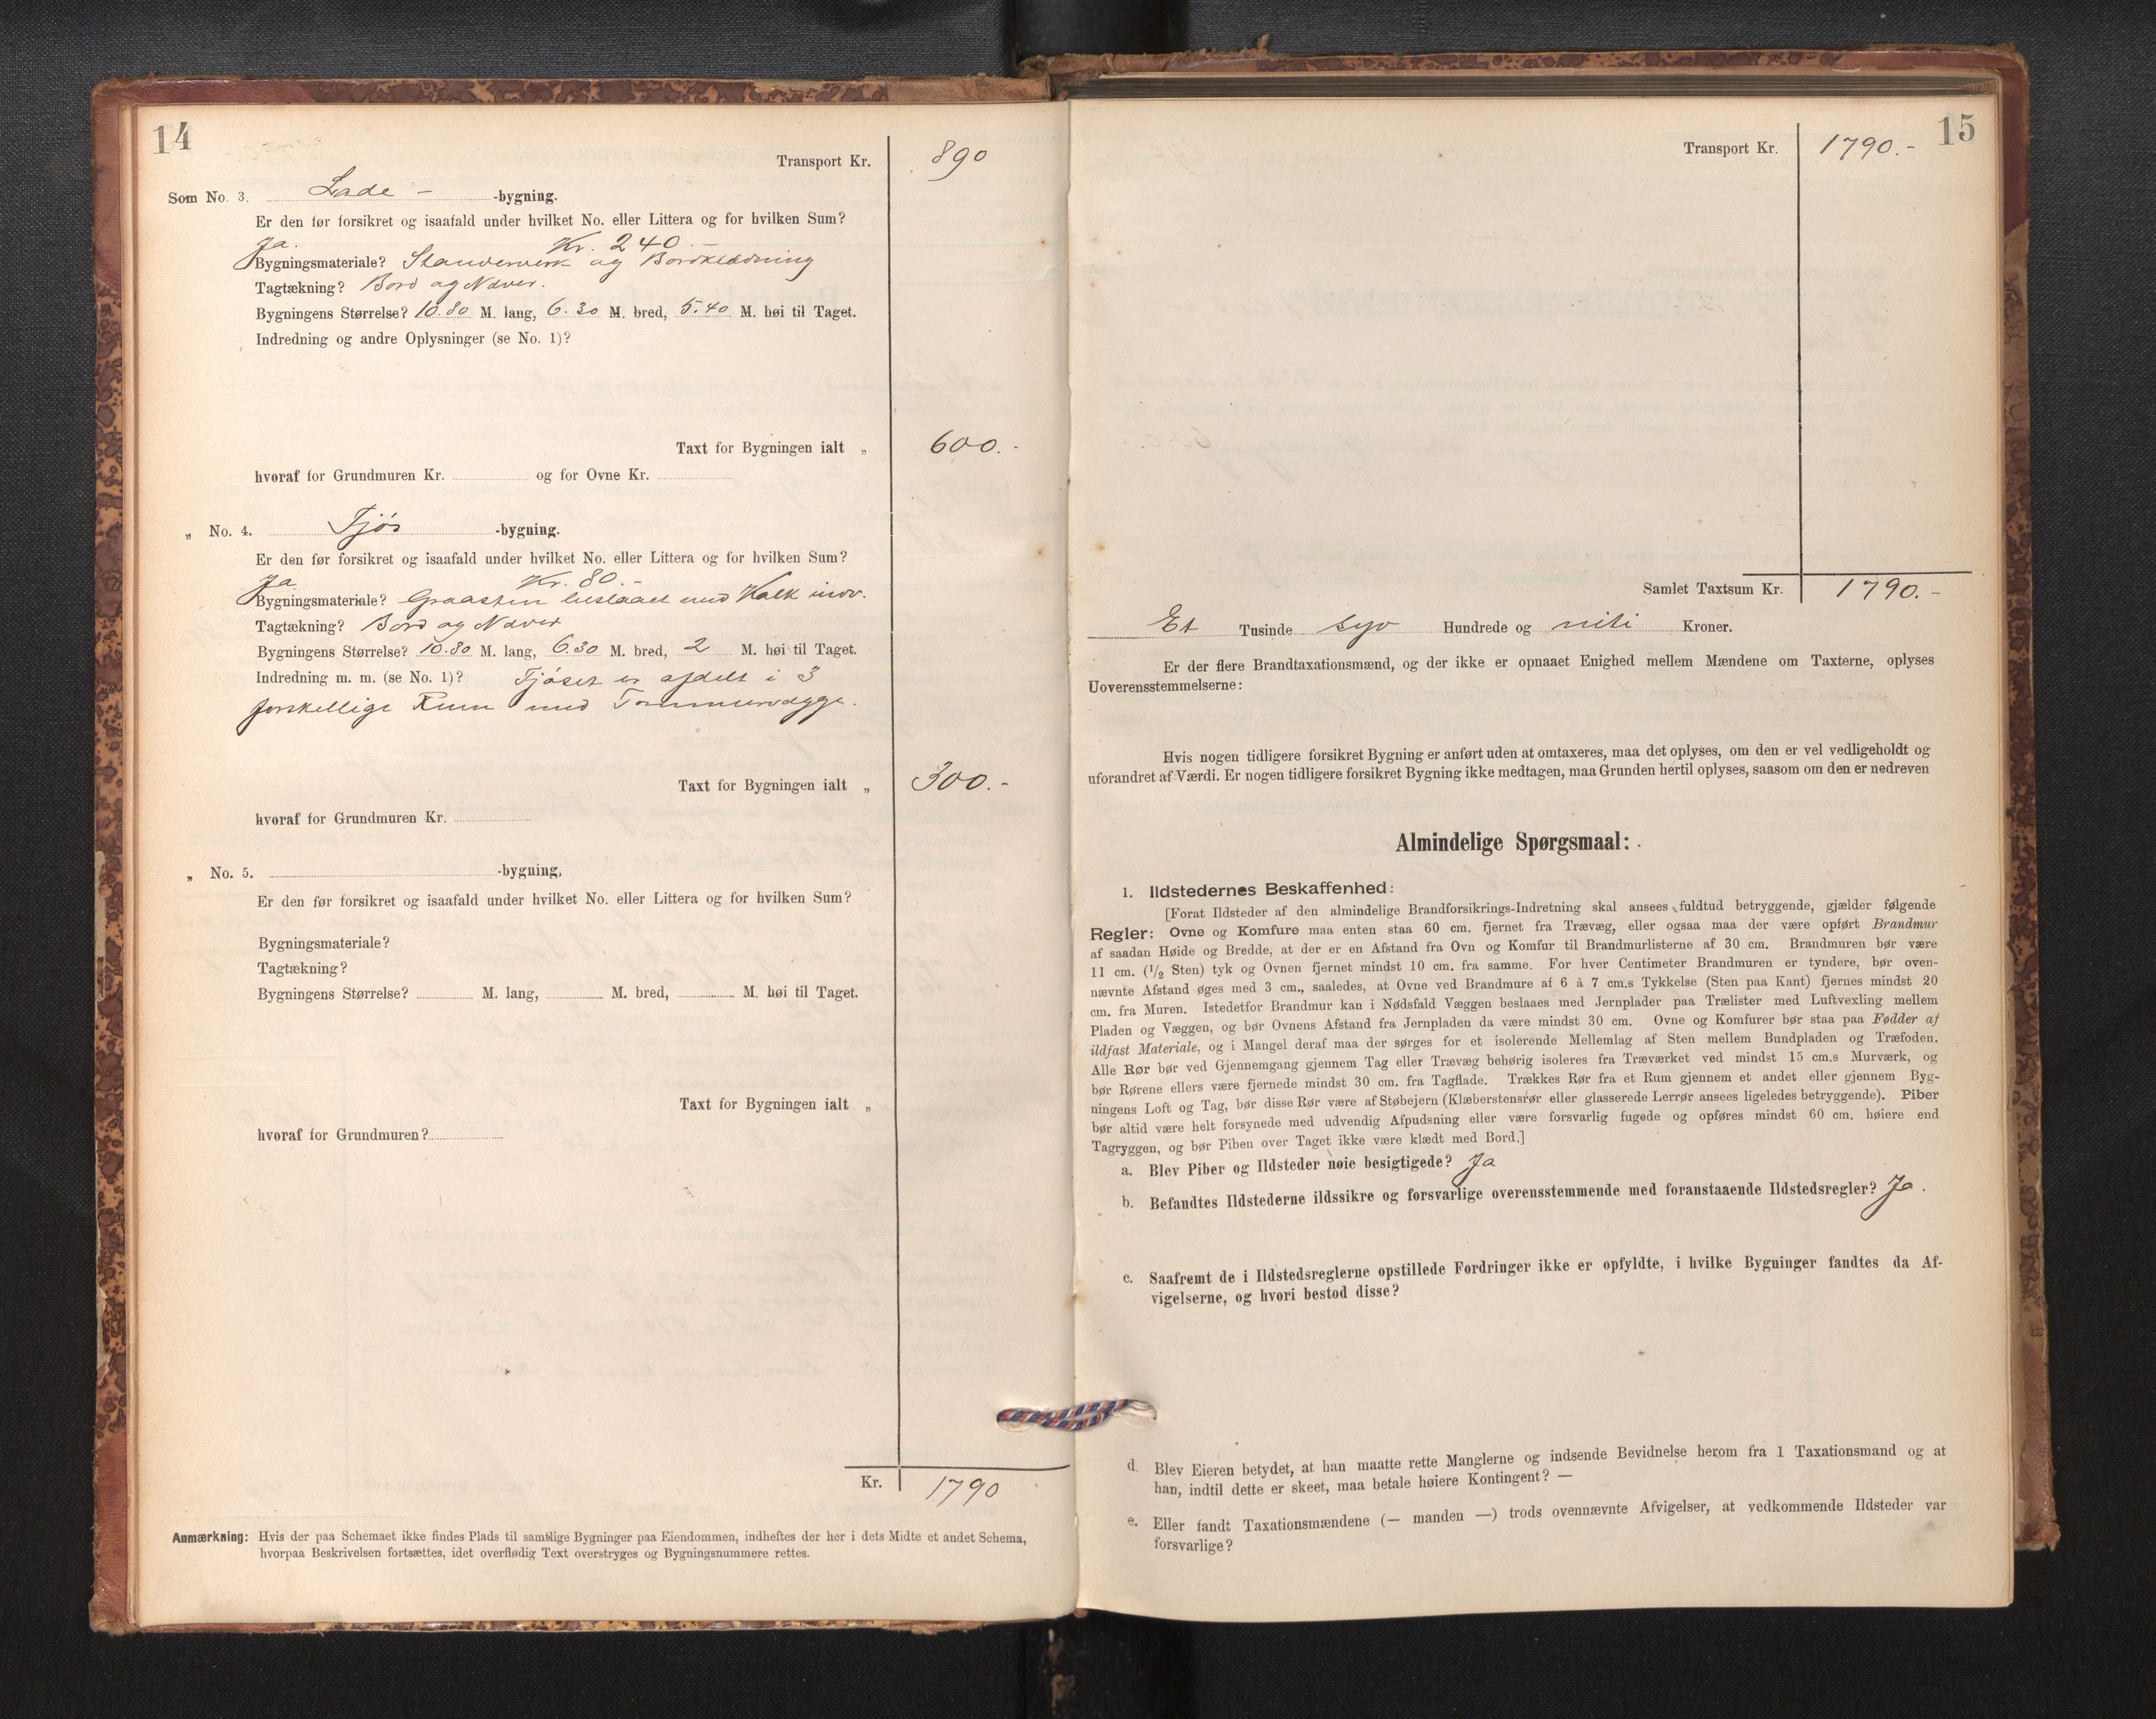 14
Transport Kr. 890
Som No. 3. Lade - -bygning.
Er den før forsikret og isaafald under hvilket No. eller Littera og for hvilken Sum?
Ja. Kr. 240.-
Bygningsmateriale? Standerverk og Bordklædning
Tagtækning? Bord og Næver.
Bygningens Størrelse? 10.80 M. lang, 6.30 M. bred, 5.40 M. høi til Taget.
Indredning og andre Oplysninger (se No. 1)?
Taxt for Bygningen ialt „ 600.-
hvoraf for Grundmuren Kr. og for Ovne Kr.
„ No. 4. Fjös -bygning.
Er den før forsikret og isaafald under hvilket No. eller Littera og for hvilken Sum?
Ja Kr. 80.-
Bygningsmateriale? Graasten beslaaet med Kalk indv.
Tagtækning? Bord og Næver
Bygningens Størrelse? 10.80 M. lang, 6.30 M. bred, 2 M. høi til Taget.
Indredning m. m. (se No. 1)? Fjöset er afdelt i 3
forskellige Rum med Tømmervægge.
Taxt for Bygningen ialt „ 300.-
hvoraf for Grundmuren Kr.
„ No. 5. -bygning,
Er den før forsikret og isaafald under hvilket No. eller Littera og for hvilken Sum?
Bygningsmateriale?
Tagtækning?
Bygningens Størrelse? M. lang, M. bred, M. høi til Taget.
Taxt for Bygningen ialt „
hvoraf for Grundmuren?
Kr. 1790
Anmærkning: Hvis der paa Schemaet ikke findes Plads til samtlige Bygninger paa Eiendommen, indheftes der her i dets Midte et andet Schema,
hvorpaa Beskrivelsen fortsættes, idet overflødig Text overstryges og Bygningsnummere rettes.
15
Transport Kr. 1790.-
Samlet Taxtsum Kr. 1790.-
Et Tusinde syv Hundrede og niti Kroner.
Er der flere Brandtaxationsmænd, og der ikke er opnaaet Enighed mellem Mændene om Taxterne, oplyses
Uoverensstemmelserne:
Hvis nogen tidligere forsikret Bygning er anført uden at omtaxeres, maa det oplyses, om den er vel vedligeholdt og
uforandret af Værdi. Er nogen tidligere forsikret Bygning ikke medtagen, maa Grunden hertil oplyses, saasom om den er nedreven
Almindelige Spørgsmaal:
1. Ildstedernes Beskaffenhed:
[Forat Ildsteder af den almindelige Brandforsikrings-Indretning skal ansees fuldtud betryggende, gjælder følgende
Regler: Ovne og Komfure maa enten staa 60 cm. fjernet fra Trævæg, eller ogsaa maa der være opført Brandmur
af saadan Høide og Bredde, at der er en Afstand fra Ovn og Komfur til Brandmurlisterne af 30 cm. Brandmuren bør være
11 cm. (1/2 Sten) tyk og Ovnen fjernet mindst 10 cm. fra samme. For hver Centimeter Brandmuren er tyndere, bør oven-
nævnte Afstand øges med 3 cm., saaledes, at Ovne ved Brandmure af 6 à 7 cm.s Tykkelse (Sten paa Kant) fjernes mindst 20
cm. fra Muren. Istedetfor Brandmur kan i Nødsfald Væggen beslaaes med Jernplader paa Trælister med Luftvexling mellem
Pladen og Væggen, og bør Ovnens Afstand fra Jernpladen da være mindst 30 cm. Ovne og Komfurer bør staa paa Fødder af
ildfast Materiale, og i Mangel deraf maa der sørges for et isolerende Mellemlag af Sten mellem Bundpladen og Træfoden.
Alle Rør bør ved Gjennemgang gjennem Tag eller Trævæg behørig isoleres fra Træværket ved mindst 15 cm.s Murværk, og
bør Rørene ellers være fjernede mindst 30 cm. fra Tagflade. Trækkes Rør fra et Rum gjennem et andet eller gjennem Byg-
ningens Loft og Tag, bør disse Rør være af Støbejern (Klæberstensrør eller glasserede Lerrør ansees ligeledes betryggende). Piber
bør altid være helt forsynede med udvendig Afpudsning eller være forsvarlig fugede og opføres mindst 60 cm. høiere end
Tagryggen, og bør Piben over Taget ikke være klædt med Bord.]
a. Blev Piber og Ildsteder nøie besigtigede? Ja
b. Befandtes Ildstederne ildssikre og forsvarlige overensstemmende med foranstaaende Ildstedsregler? Ja.
c. Saafremt de i Ildstedsreglerne opstillede Fordringer ikke er opfyldte, i hvilke Bygninger fandtes da Af-
vigelserne, og hvori bestod disse?
d. Blev Eieren betydet, at han maatte rette Manglerne og indsende Bevidnelse herom fra 1 Taxationsmand og at
han, indtil dette er skeet, maa betale høiere Kontingent? —
e. Eller fandt Taxationsmændene (— manden —) trods ovennævnte Afvigelser, at vedkommende Ildsteder var
forsvarlige?